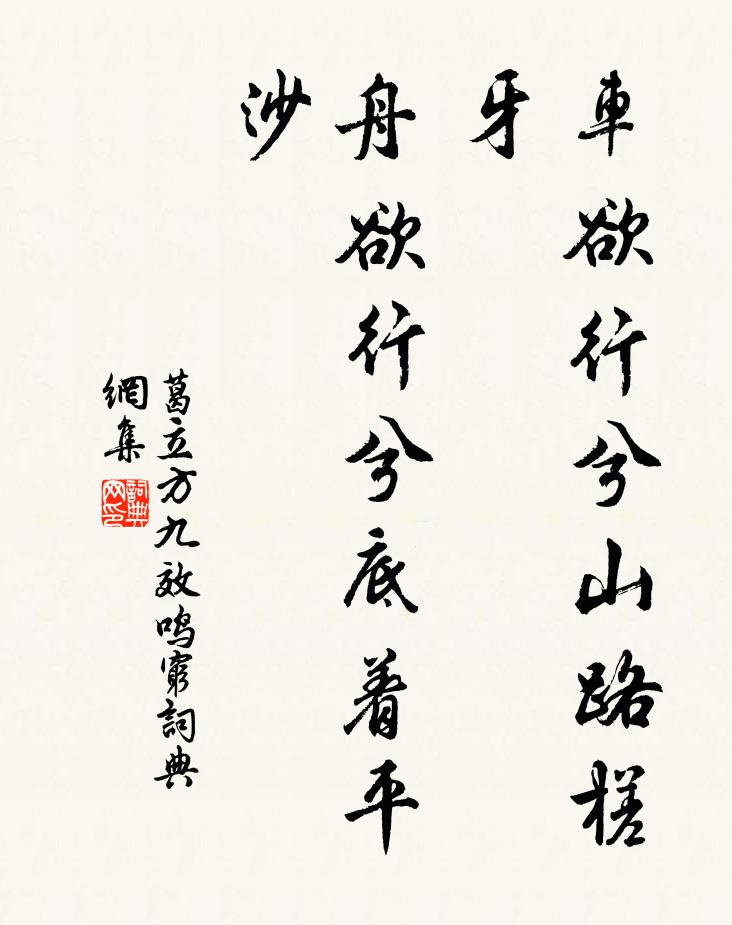 車欲行兮山路槎
牙
舟欲行兮底着平
沙
葛立方九效鸣窮詞典
網集
詞典
网印